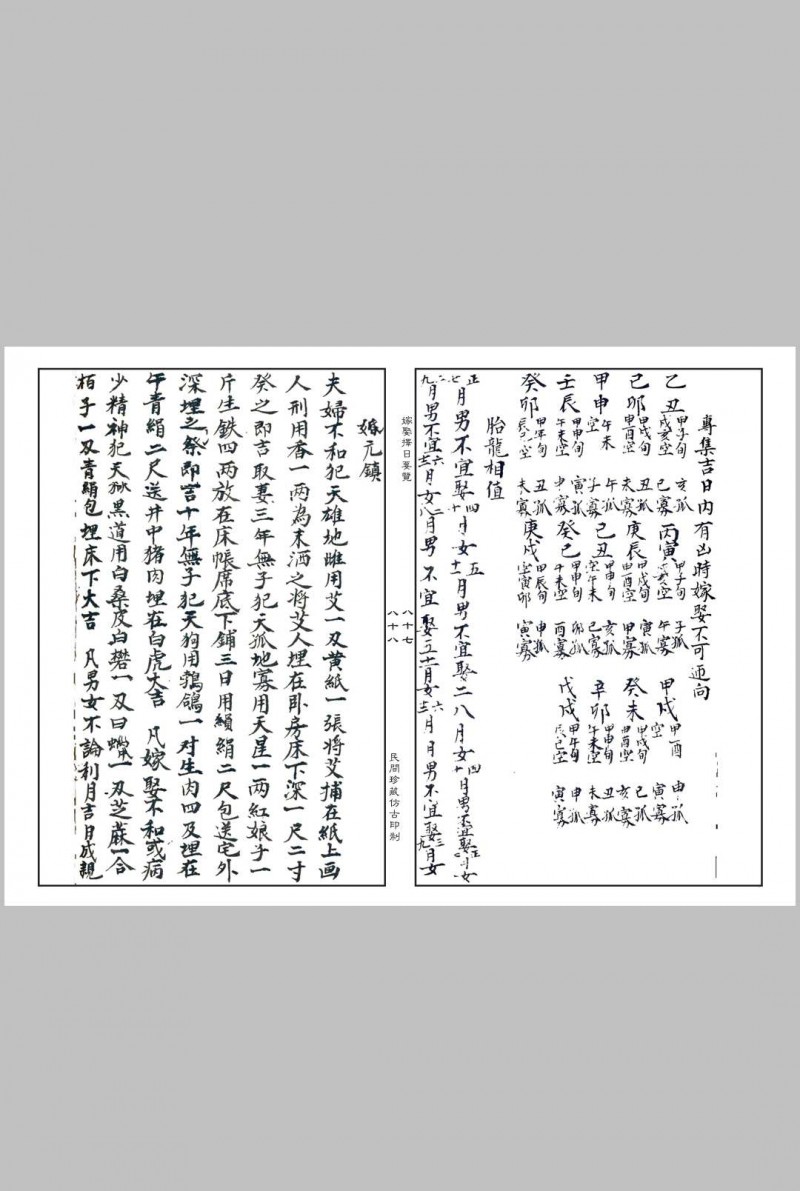 專集吉日內有凶時嫁娶不可迎向
乙丑 甲子旬 戌亥空 亥孤 巳寡 丙寅 甲子旬 子孤 午寡 甲戌 甲酉空 申孤 寅寡
己卯 甲戌旬 甲酉空 丑孤 未寡 庚辰 甲戌旬 申酉空 寅孤 甲寡 癸未 甲戌旬 申酉空 巳孤 亥寡
甲申 午未空 午孤 子寡 己丑 甲申旬 午未空 亥孤 巳寡 辛卯 甲申旬 午未空 丑孤 未寡
壬辰 甲申旬 午未空 寅孤 申寡 癸巳 甲申旬 午未空 卯孤 酉寡 戊戌 甲午旬 辰巳空 申孤 寅寡
癸卯 甲午旬 辰巳空 丑孤 未寡 庚戌 甲辰旬 空寅卯 申孤 寅寡
胎龍相值
正七月男不宜娶四十月女五十一月男不宜娶二八月女四十月男不宜娶正
九月男不宜六十二月女二八月男不宜娶五十一月女六十二月男不宜娶三九月女
嫁娶擇日要覽
八十七
八十八
民間珍藏仿古印制
嫁元鎮
夫婦不和犯天雄地雌用艾一刄黄紙一張將艾捕在紙上画
人刑用香一两為末洒之將艾人埋在卧房床下深一尺二寸
癸之即吉取妻三年無子犯天孤地寡用天星一两紅娘子一
斤生鉄四两放在床帳席底下鋪三日用絹二尺包送宅外
深埋之祭即吉十年無子犯天狗用鵓鴿一对生肉四及埋在
午青絹二尺送井中猪肉埋在白虎大吉 凡嫁娶不和或病
少精神犯天獄黑道用白桑皮白礬一刄白蠟一刄芝蔴一合
栢子一刄青絹包埋床下大吉 凡男女不論利月吉日成親